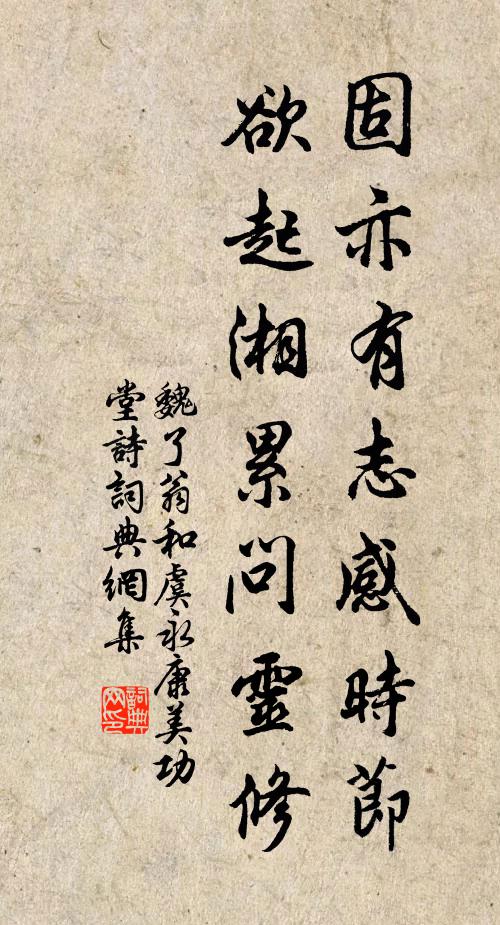 固亦有志感時節
欲起湘累問靈修
魏了翁和虞永康美功
堂詩詞典網集
詞典
网印